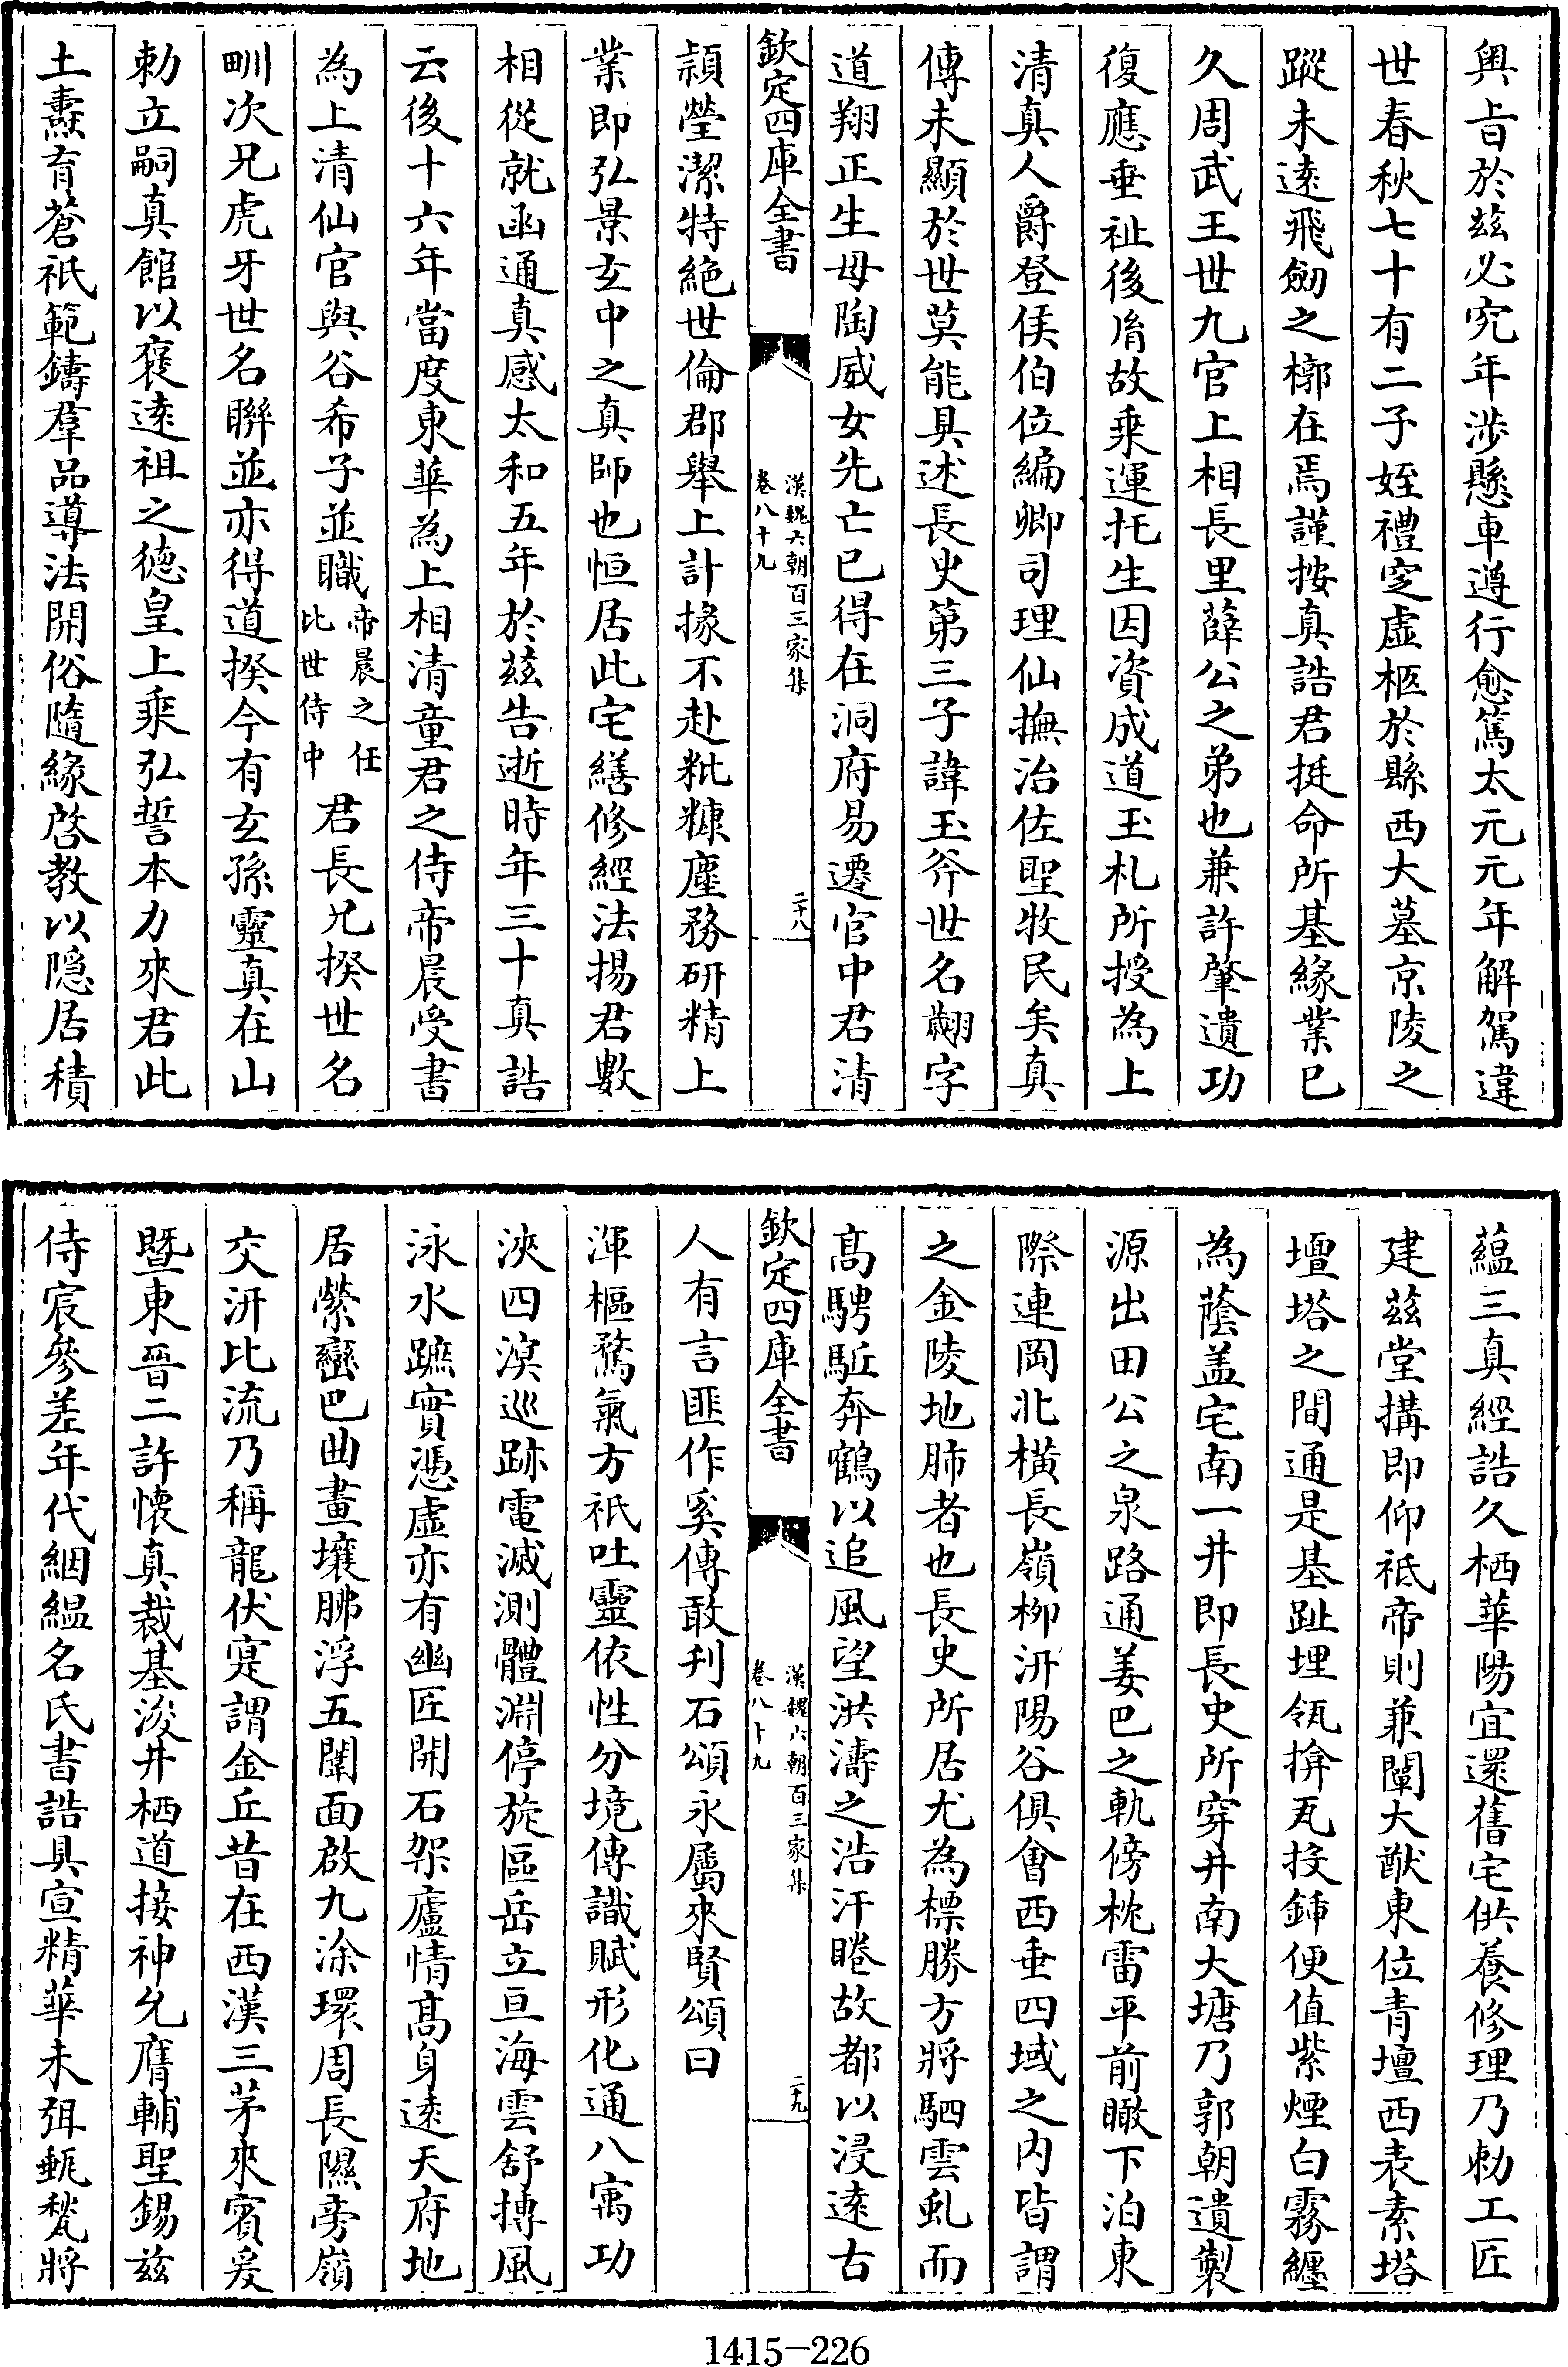 奥㫖於兹必究年渉懸車遵行愈篤太元元年解駕違
世春秋七十有二子姪禮窆虚柩於縣西大墓京陵之
蹤未逺飛劒之槨在焉謹按真誥君挺命所基緣業已
久周武王世九官上相長里薛公之弟也兼許肇遺功
復應垂祉後㣧故乗運托生因資成道玉札所授為上
清真人爵登侯伯位編卿司理仙撫治佐聖牧民矣真
傳未顯於世莫能具述長史第三子諱玉斧世名翽字
道翔正生母陶威女先亡已得在洞府易遷宫中君清
欽定四庫全書
漢魏六朝百三家集
卷八十九
二十八
頴瑩潔特絶世倫郡舉上計掾不赴粃糠塵務研精上
業即弘景𤣥中之真師也恒居此宅繕修經法揚君數
相從就函通真感太和五年於兹告逝時年三十真誥
云後十六年當度東華為上相清童君之侍帝晨受書
為上清仙官與谷希子並職帝晨之任比世侍中君長兄揆世名
甽次兄虎牙世名聯並亦得道揆今有𤣥孫靈真在山
勅立嗣真館以褒逺祖之德皇上乘弘誓本力來君此
土燾育蒼祇範鑄羣品導法開俗隨緣啓教以隠居積
蘊三真經誥久栖華陽宜還舊宅供養修理乃勅工匠
建兹堂搆即仰祗帝則兼闡大猷東位青壇西表素塔
壇塔之間通是基趾埋瓴揜瓦投鍤便值紫煙白霧纒
為蔭盖宅南一井即長史所穿井南大塘乃郭朝遺製
源出田公之泉路通姜巴之軌傍枕雷平前瞰下泊東
際連岡北横長嶺栁汧陽谷俱會西垂四域之内皆謂
之金陵地肺者也長史所居尤為標勝方將駟雲虬而
髙騁駈奔鶴以追風望洪濤之浩汗睠故都以浸逺古
欽定四庫全書
漢魏六朝百三家集
卷八十九
二十九
人有言匪作奚傳敢刋石頌永屬來賢頌曰
渾樞騖氣方祇吐靈依性分境傳識賦形化通八㝢功
浹四溟巡跡電滅測體淵停旋區岳立亘海雲舒摶風
泳水蹠實憑虚亦有幽匠開石架廬情髙身逺天府地
居縈巒巴曲畫壤胏浮五闉面啟九涂環周長隰旁嶺
交汧比流乃稱龍伏寔謂金丘昔在西漢三茅來賓爰
暨東晉二許懐真裁基浚井栖道接神允膺輔聖錫兹
侍宸參差年代絪緼名氏書誥具宣精華未弭甎甃將
1415-226